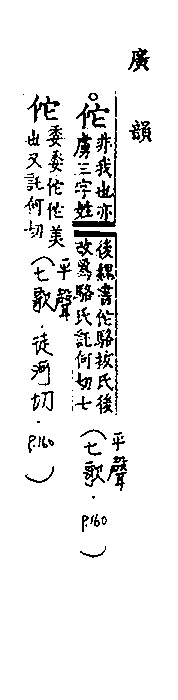 廣韻
佗 非我也亦虜三字姓
後魏書佗駱拔氏後改爲駱氏託何切七
平聲
(七歌．p.160)
佗 委委佗佗美也又託何切
平聲
(七歌．徒河切．p.160)